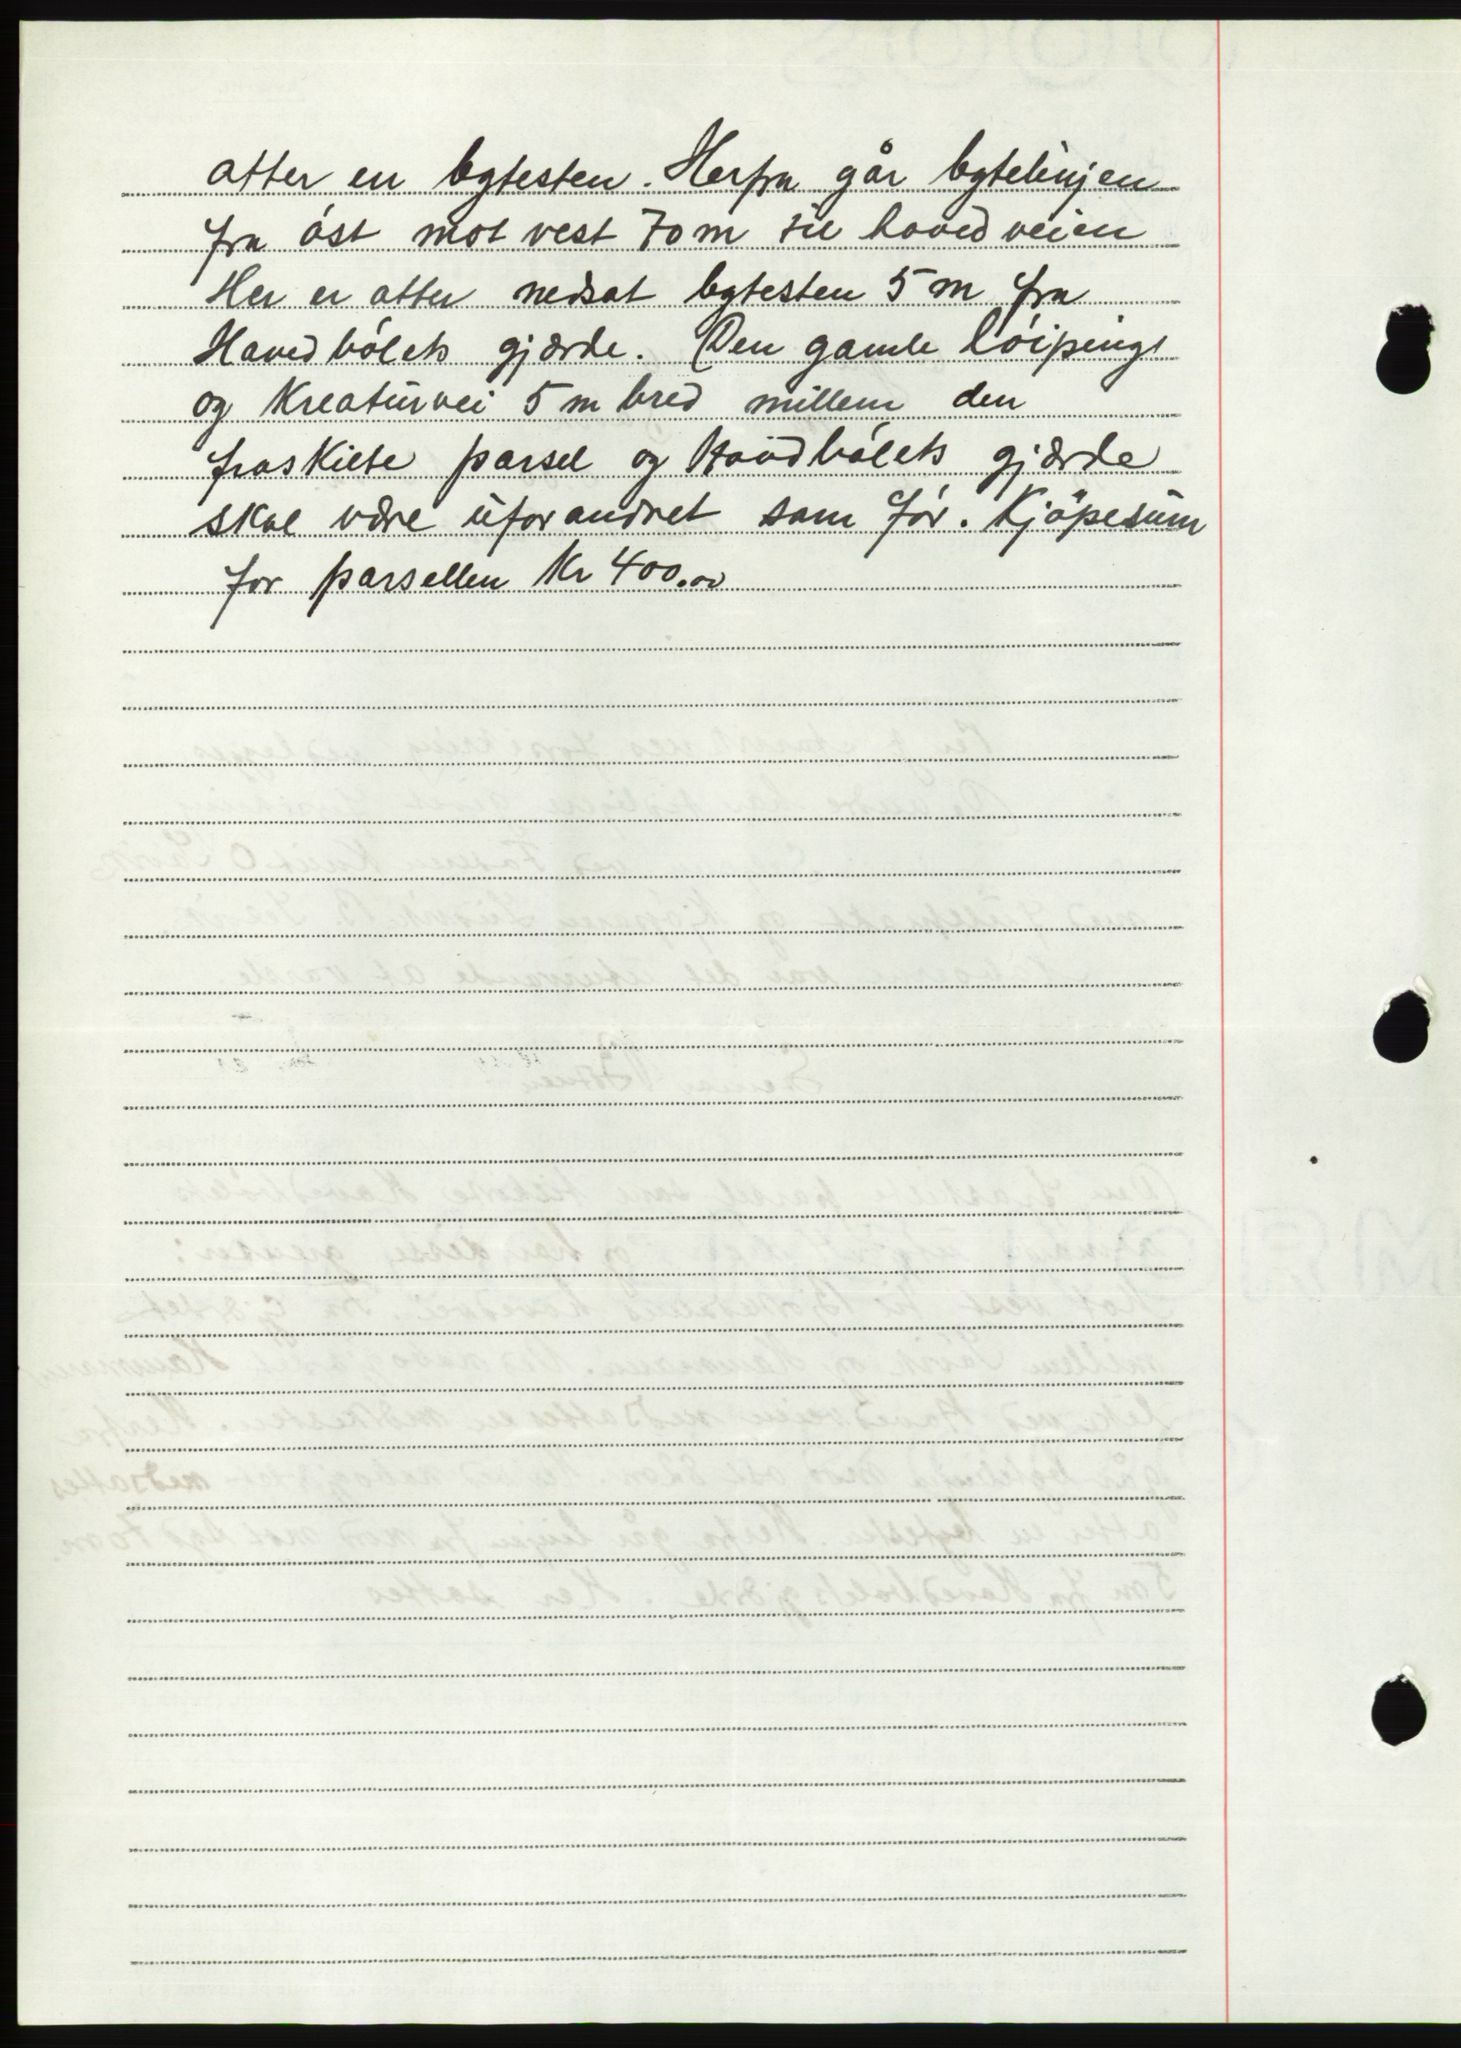 atter en bytesten. Herfra går bytelinjen
fra óst mot vest 70 m til hovedveien
Her er atter nedsat bytesten 5 m fra
Havedbólets gjærde. Den gamle lóipings
og Kreatúrvei 5 m bred millem den
fraskilte parsel og Havedbólets gjærde
skal være úforandret som fór. Kjöpesúm
for parsellen Kr 400.00